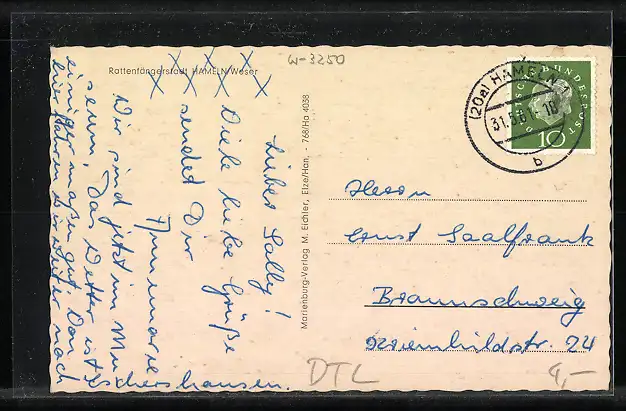 Rattenfängerstadt HAMELN/Weser
W-3250
Lieber Sally!
Viele liebe Grüße
sendet Dir
Annemarie
Wir sind jetzt im
sein. Das Wetter ist
einigermaßen gut. Von
hier fahren wir weiter nach
Marienburg-Verlag M. Eichler, Elze/Han. - 768/Ha 4038
(20a) HAMELN 1
31.5.61.-18
b
DEUTSCHE BUNDESPOST
10
Herrn
Ernst Saalfrank
Braunschweig
Kriemhildstr. 24
DTL
4,-